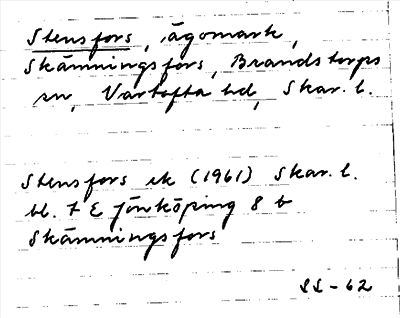 Stensfors, ägomark,
Skämningsfors, Brandstorps
sn, Vartofta hd, Skar. l.
Stensfors ek (1961) Skar. l.
bl. 7 E Jönköping 8 b
Skämningsfors
SS-62